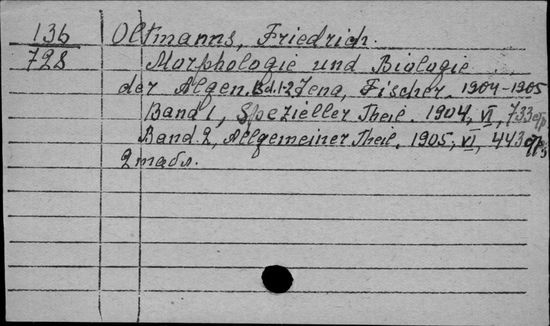 136 Oltmanns, Friedrich.
728 Morphologie und Biologie
der Algen. Bd. 1-2 Jena, Fischer. 1904-1905
Band 1, Spezieller Theil. 1904, VI, 733 стр
Band. 2, Allgemeiner Theil. 1905, VI, 443 стр,
2 табл.